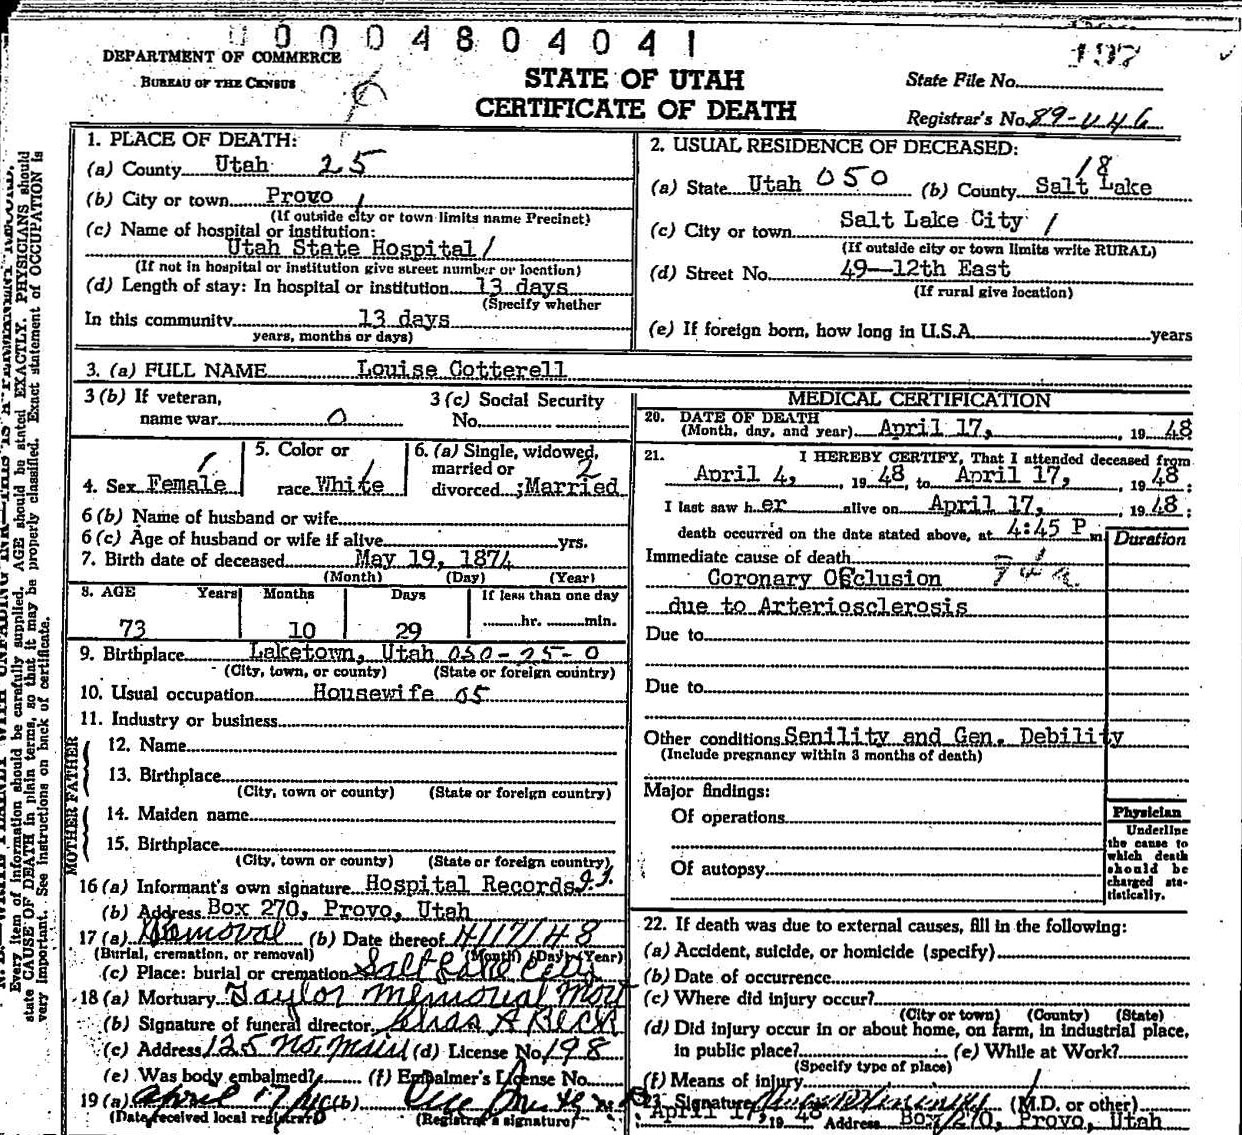 00004804041
DEPARTMENT OF COMMERCE
BUREAU OF THE CENSUS
STATE OF UTAH
CERTIFICATE OF DEATH
State File No.
Registrar's No. 89-
1. PLACE OF DEATH:
(a) County Utah 25
(b) City or town Provo 1
(If outside city or town limits name Precinct)
(c) Name of hospital or institution:
Utah State Hospital 1
(If not in hospital or institution give street number or location)
(d) Length of stay: In hospital or institution 13 days
(Specify whether
In this community 13 days
years, months or days)
2. USUAL RESIDENCE OF DECEASED:
18
(a) State Utah 050 (b) County Salt Lake
(c) City or town Salt Lake City 1
(If outside city or town limits write RURAL)
(d) Street No. 49--12th East
(If rural give location)
(e) If foreign born, how long in U.S.A. years
3. (a) FULL NAME Louise Cotterell
3 (b) If veteran,
name war 0
3 (c) Social Security
No.
4. Sex Female 1
5. Color or
race White 1
6. (a) Single, widowed,
married or 2
divorced ;Married
6 (b) Name of husband or wife
6 (c) Age of husband or wife if alive yrs.
7. Birth date of deceased May 19, 1874
(Month) (Day) (Year)
8. AGE Years Months Days If less than one day
73 10 29 hr. min.
9. Birthplace Laketown, Utah 050-25-0
(City, town, or county) (State or foreign country)
10. Usual occupation Housewife 05
11. Industry or business
FATHER
12. Name
13. Birthplace
(City, town or county) (State or foreign country)
MOTHER
14. Maiden name
15. Birthplace
(City, town or county) (State or foreign country)
16 (a) Informant's own signature Hospital Records
(b) Address Box 270, Provo, Utah
17 (a) Removal (b) Date thereof 4/17/48
(Burial, cremation, or removal) (Month) (Day) (Year)
(c) Place: burial or cremation Salt Lake City
18 (a) Mortuary Taylor Memorial Mort
(b) Signature of funeral director Chas A Beck
(c) Address 125 No. Main (d) License No. 198
(e) Was body embalmed? (f) Embalmer's License No.
19 (a) April 17/48 (b)
(Date received local registrar) (Registrar's signature)
MEDICAL CERTIFICATION
20. DATE OF DEATH
(Month, day, and year) April 17, , 19 48
21. I HEREBY CERTIFY, That I attended deceased from
April 4, , 19 48, to April 17, , 19 48;
I last saw h er alive on April 17, , 19 48;
death occurred on the date stated above, at 4:45 P m
Duration
Immediate cause of death
Coronary Occlusion
due to Arteriosclerosis
Due to
Due to
Other conditions Senility and Gen. Debility
(Include pregnancy within 3 months of death)
Major findings:
Of operations
Of autopsy
Physician
Underline
the cause to
which death
should be
charged sta-
tistically.
22. If death was due to external causes, fill in the following:
(a) Accident, suicide, or homicide (specify)
(b) Date of occurrence
(c) Where did injury occur?
(City or town) (County) (State)
(d) Did injury occur in or about home, on farm, in industrial place,
in public place? (e) While at Work?
(Specify type of place)
(f) Means of injury
23. Signature (M.D. or other)
April 17, 19 48 Address Box 270, Provo, Utah
Every item of information should be carefully supplied. AGE should be stated EXACTLY. PHYSICIANS should
state CAUSE OF DEATH in plain terms, so that it may be properly classified. Exact statement of OCCUPATION is
very important. See instructions on back of certificate.